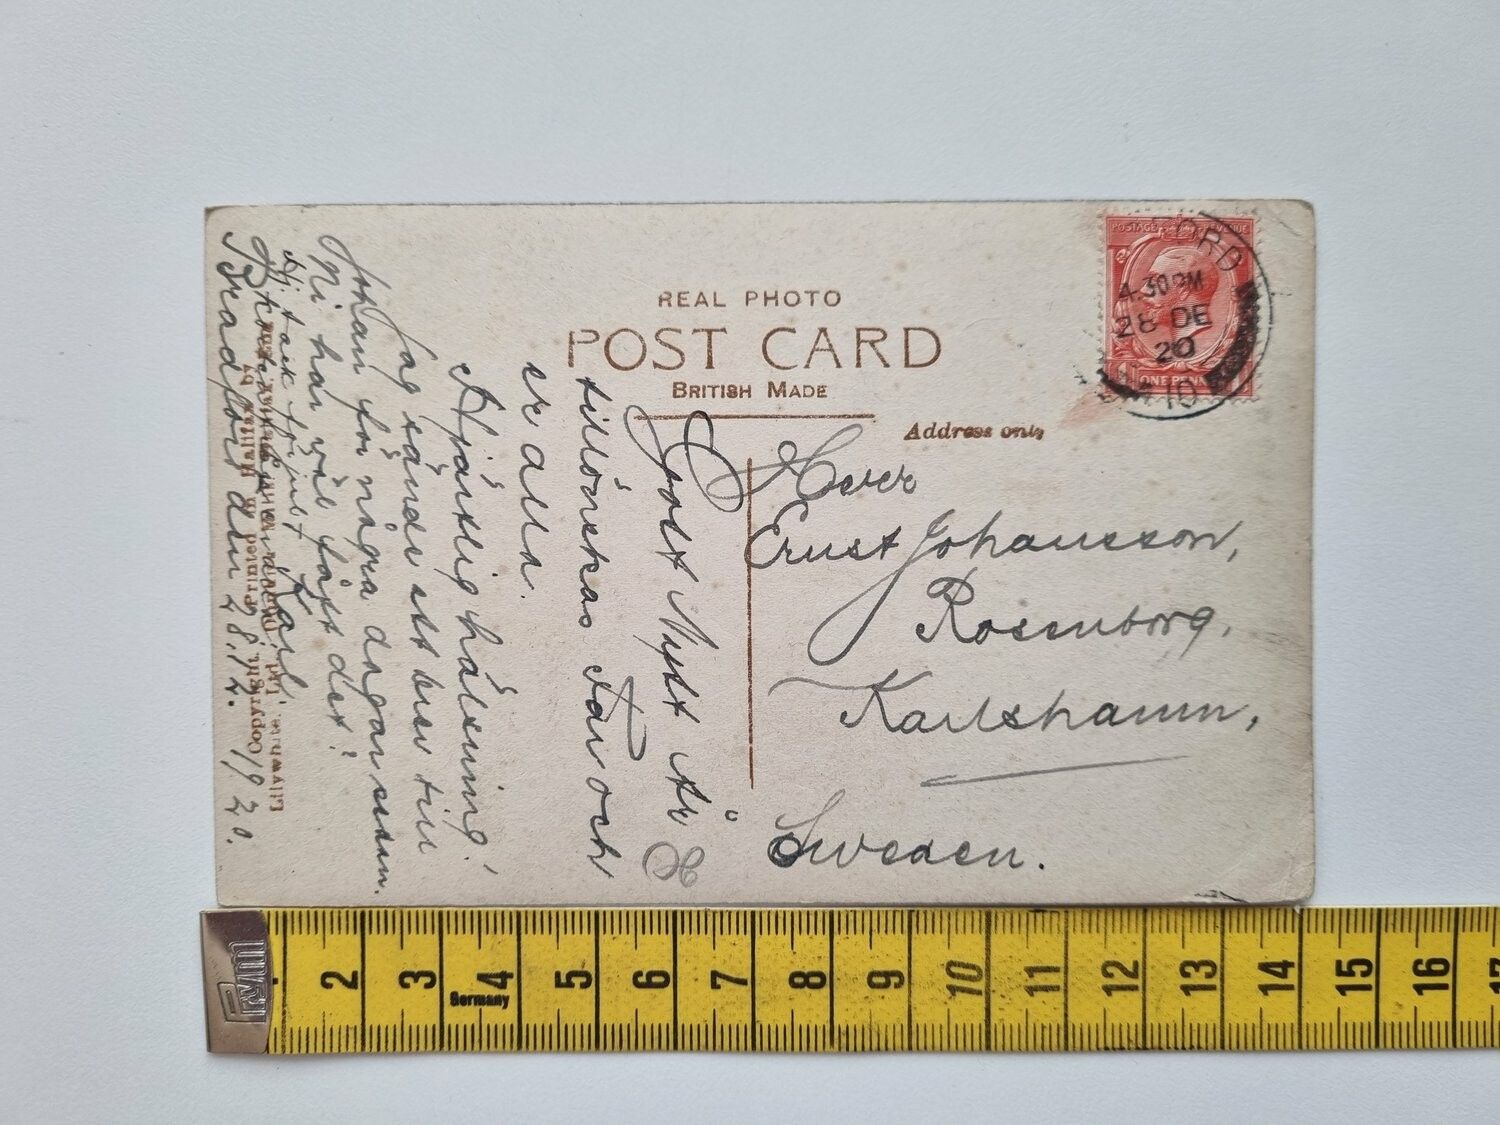 REAL PHOTO
POST CARD
BRITISH MADE
Address only
POSTAGE REVENUE
ONE PENNY
ORD
4.30 PM
28 DE
20
10
Herr
Ernst Johansson,
Rosenborg,
Karlshamn,
Sweden.
Bradford den 28/12. 1920.
Hj. tack för
Karl.
Ni har väl fått det?
Johan för några dagar sedan.
Jag sände ett brev till
Hjärtlig hälsning!
er alla.
tillönskas Far och
Gott Nytt År
Copyright. Printed in Halifax by
Lilywhite, Ltd.
Prym
Germany
2 3 4 5 6 7 8 9 10 11 12 13 14 15 16 17